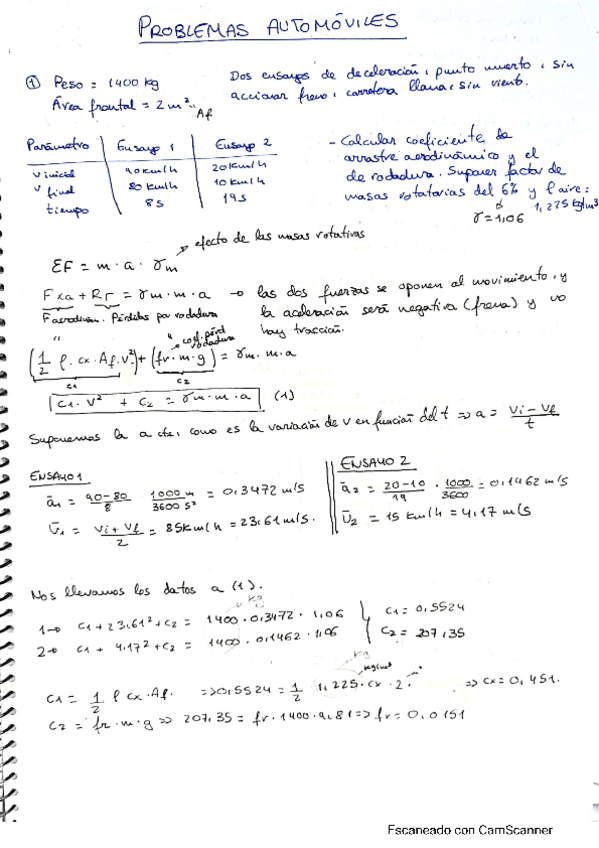 PROBLEMAS AUTOMÓVILES
① Peso = 1400 kg
Área frontal = 2 m² Af
Dos ensayos de deceleración, punto muerto, sin
accionar freno, carretera llana, sin viento.
Parámetro | Ensayo 1 | Ensayo 2
v inicial | 90 km/h | 20 km/h
v final | 80 km/h | 10 km/h
tiempo | 8 s | 19 s
- Calcular coeficiente de
arrastre aerodinámico y el
de rodadura. Suponer factor de
masas rotatorias del 6% y ρ aire:
γ = 1,06 1,225 kg/m³
efecto de las masas rotativas
ΣF = m · a · γm
Fxa + Rr = γm · m · a → las dos fuerzas se oponen al movimiento, y
Faerodinám. Pérdidas por rodadura la aceleración será negativa (frena) y no
hay tracción.
" " coef. pérd rodadura
(1/2 ρ · cx · Af · v²) + (fr · m · g) = γm · m · a
c1 c2
c1 · v² + c2 = γm · m · a (1)
Suponemos la a cte, como es la variación de v en función del t ⇒ a = vi - vf / t
ENSAYO 1
ā1 = 90-80 / 8 · 1000 m / 3600 s² = 0,3472 m/s
v̄1 = vi + vf / 2 = 85 km/h = 23,61 m/s.
ENSAYO 2
ā2 = 20-10 / 19 · 1000 / 3600 = 0,1462 m/s
v̄2 = 15 km/h = 4,17 m/s
Nos llevamos los datos a (1).
kg
1→ c1 + 23,61² + c2 = 1400 · 0,3472 · 1,06
2→ c1 + 4,17² + c2 = 1400 · 0,1462 · 1,06
c1 = 0,5524
c2 = 207,35
kg
kg/m³ m²
c1 = 1/2 ρ cx · Af. ⇒ 0,5524 = 1/2 1,225 · cx · 2 ⇒ cx = 0,451.
c2 = fr · m · g ⇒ 207,35 = fr · 1400 · 9,81 ⇒ fr = 0,0151
Escaneado con CamScanner